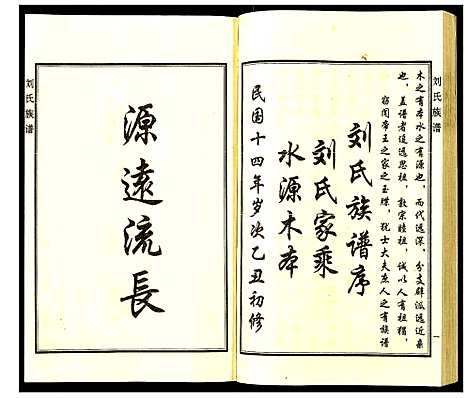 刘氏族谱
木之有本水之有源也，而代远深，分支辟派远近亲
也，盖谱者追远思祖，敦宗睦祖，诚以人有祖祢，
窃闻帝王之家之玉牒，犹士大夫庶人之有族谱
刘氏族谱序
刘氏家乘
水源木本
民国十四年岁次乙丑初修
一
刘氏族谱
源遠流長